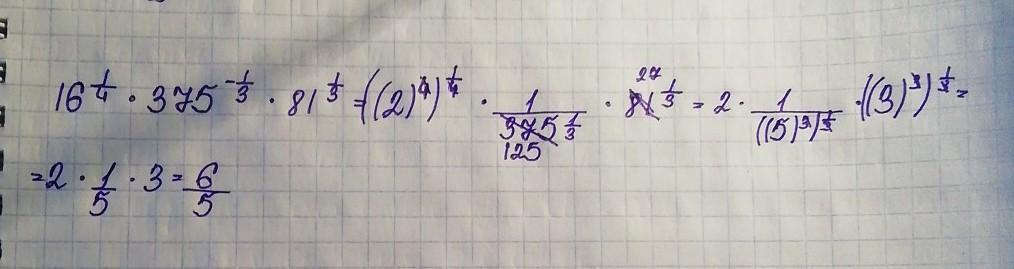 16^{1/4} · 375^{-1/3} · 81^{1/3} = ((2)^4)^{1/4} · 1/375^{1/3} 125 · 27 81^{1/3} = 2 · 1/((5)^3)^{1/3} · ((3)^3)^{1/3} =
= 2 · 1/5 · 3 = 6/5